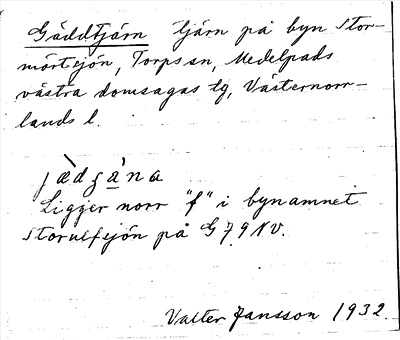 Gäddtjärn tjärn på byn Stor-
mörtsjön, Torps sn, Medelpads
västra domsagas tg, Västernorr-
lands l.
Ligger norr "f" i bynamnet
Storulfsjön på G 79 NV.
Valter Jansson 1932.